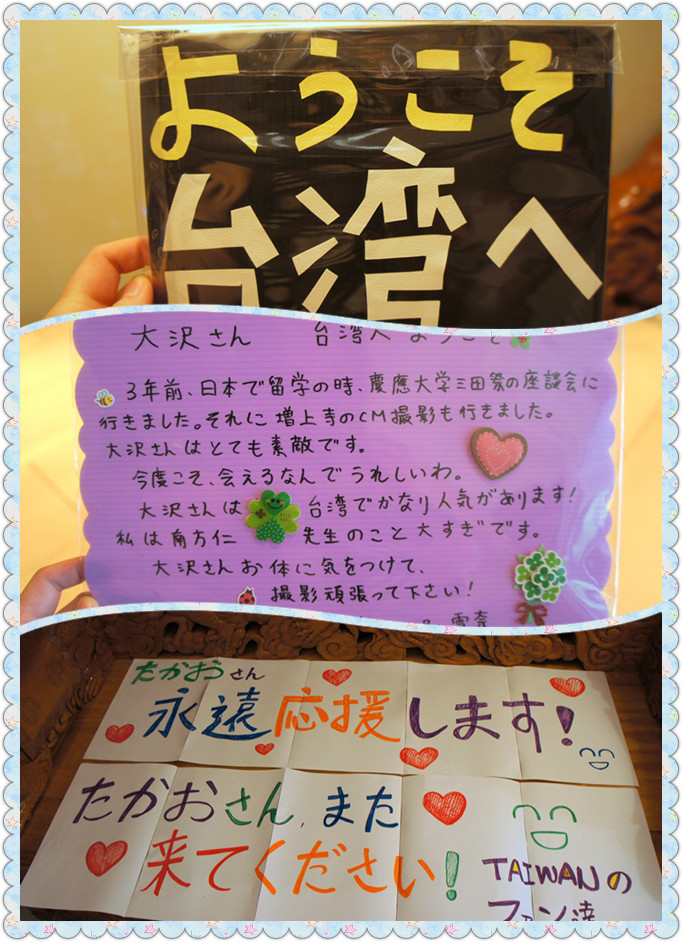 ようこそ
台湾へ
大沢さん 台湾へようこそ
3年前、日本で留学の時、慶應大学三田祭の座談会に
行きました。それに増上寺のCM撮影も行きました。
大沢さんはとても素敵です。
今度こそ、会えるなんでうれしいわ。
大沢さんは 台湾でかなり人気があります!
私は南方仁 先生のこと大すぎです。
大沢さんお体に気をつけて、
撮影頑張って下さい!
雪奈
たかおさん
永遠応援します!
たかおさん、また
来てください!
TAIWANの
ファン達